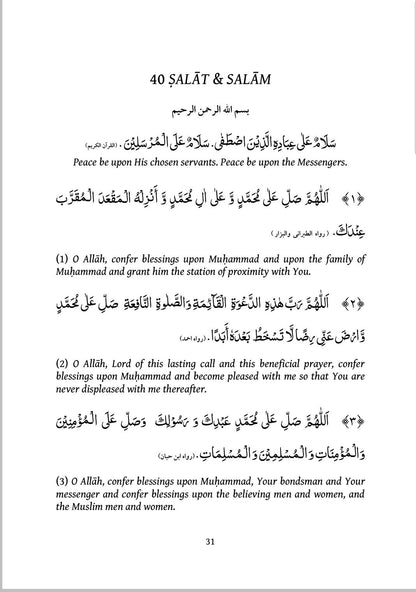 40 ṢALĀT & SALĀM
بسم الله الرحمن الرحيم
سَلَامٌ عَلٰى عِبَادِهِ الَّذِيْنَ اصْطَفٰى. سَلَامٌ عَلَى الْمُرْسَلِيْنَ . (القرآن الكريم)
Peace be upon His chosen servants. Peace be upon the Messengers.
﴿١﴾ اَللّٰهُمَّ صَلِّ عَلٰى مُحَمَّدٍ وَّ عَلٰى اٰلِ مُحَمَّدٍ وَّ أَنْزِلْهُ الْمَقْعَدَ الْمُقَرَّبَ
عِنْدَكَ. ( رواه الطبرانى والبزار )
(1) O Allāh, confer blessings upon Muḥammad and upon the family of
Muḥammad and grant him the station of proximity with You.
﴿٢﴾ اَللّٰهُمَّ رَبَّ هٰذِهِ الدَّعْوَةِ الْقَائِمَةِ وَالصَّلٰوةِ النَّافِعَةِ صَلِّ عَلٰى مُحَمَّدٍ
وَّارْضَ عَنِّى رِضًا لَّا تَسْخَطُ بَعْدَهٗ أَبَدًا. (رواه احمد)
(2) O Allāh, Lord of this lasting call and this beneficial prayer, confer
blessings upon Muḥammad and become pleased with me so that You are
never displeased with me thereafter.
﴿٣﴾ اَللّٰهُمَّ صَلِّ عَلٰى مُحَمَّدٍ عَبْدِكَ وَ رَسُوْلِكَ وَصَلِّ عَلَى الْمُؤْمِنِيْنَ
وَالْمُؤْمِنَاتِ وَالْمُسْلِمِيْنَ وَالْمُسْلِمَاتِ. (رواه ابن حبان)
(3) O Allāh, confer blessings upon Muḥammad, Your bondsman and Your
messenger and confer blessings upon the believing men and women, and
the Muslim men and women.
31